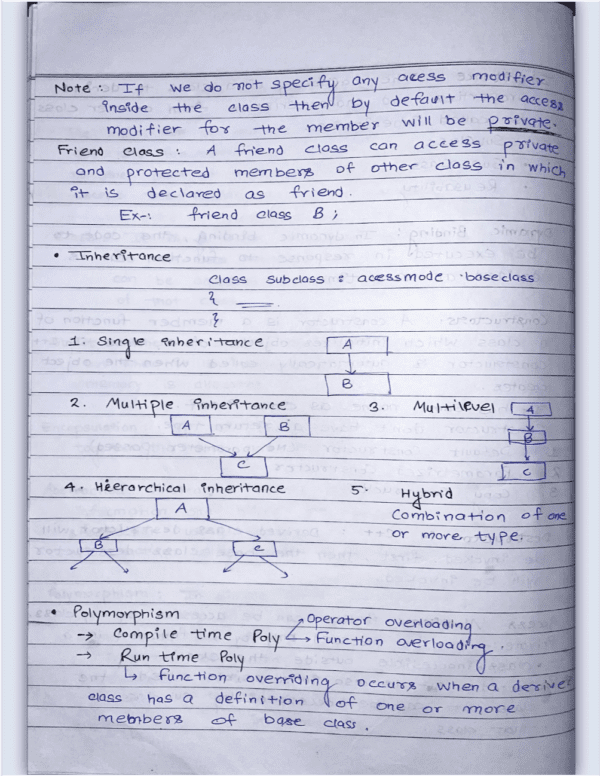 Note : If we do not specify any acess modifier
inside the class then by default the access
modifier for the member will be private.
Friend class : A friend class can access private
and protected members of other class in which
it is declared as friend.
Ex-: friend class B ;
• Inheritance
class subclass : acessmode baseclass
{ ___
}
1. Single inheritance
A
B
2. Multiple inheritance
A B
C
3. Multilevel
A
B
C
4. Hierarchical inheritance
A
B C
5. Hybrid
Combination of one
or more type.
• Polymorphism
→ Compile time Poly → Operator overloading
→ Function overloading.
→ Run time Poly
↳ Function overriding occurs when a derive
class has a definition of one or more
members of base class.